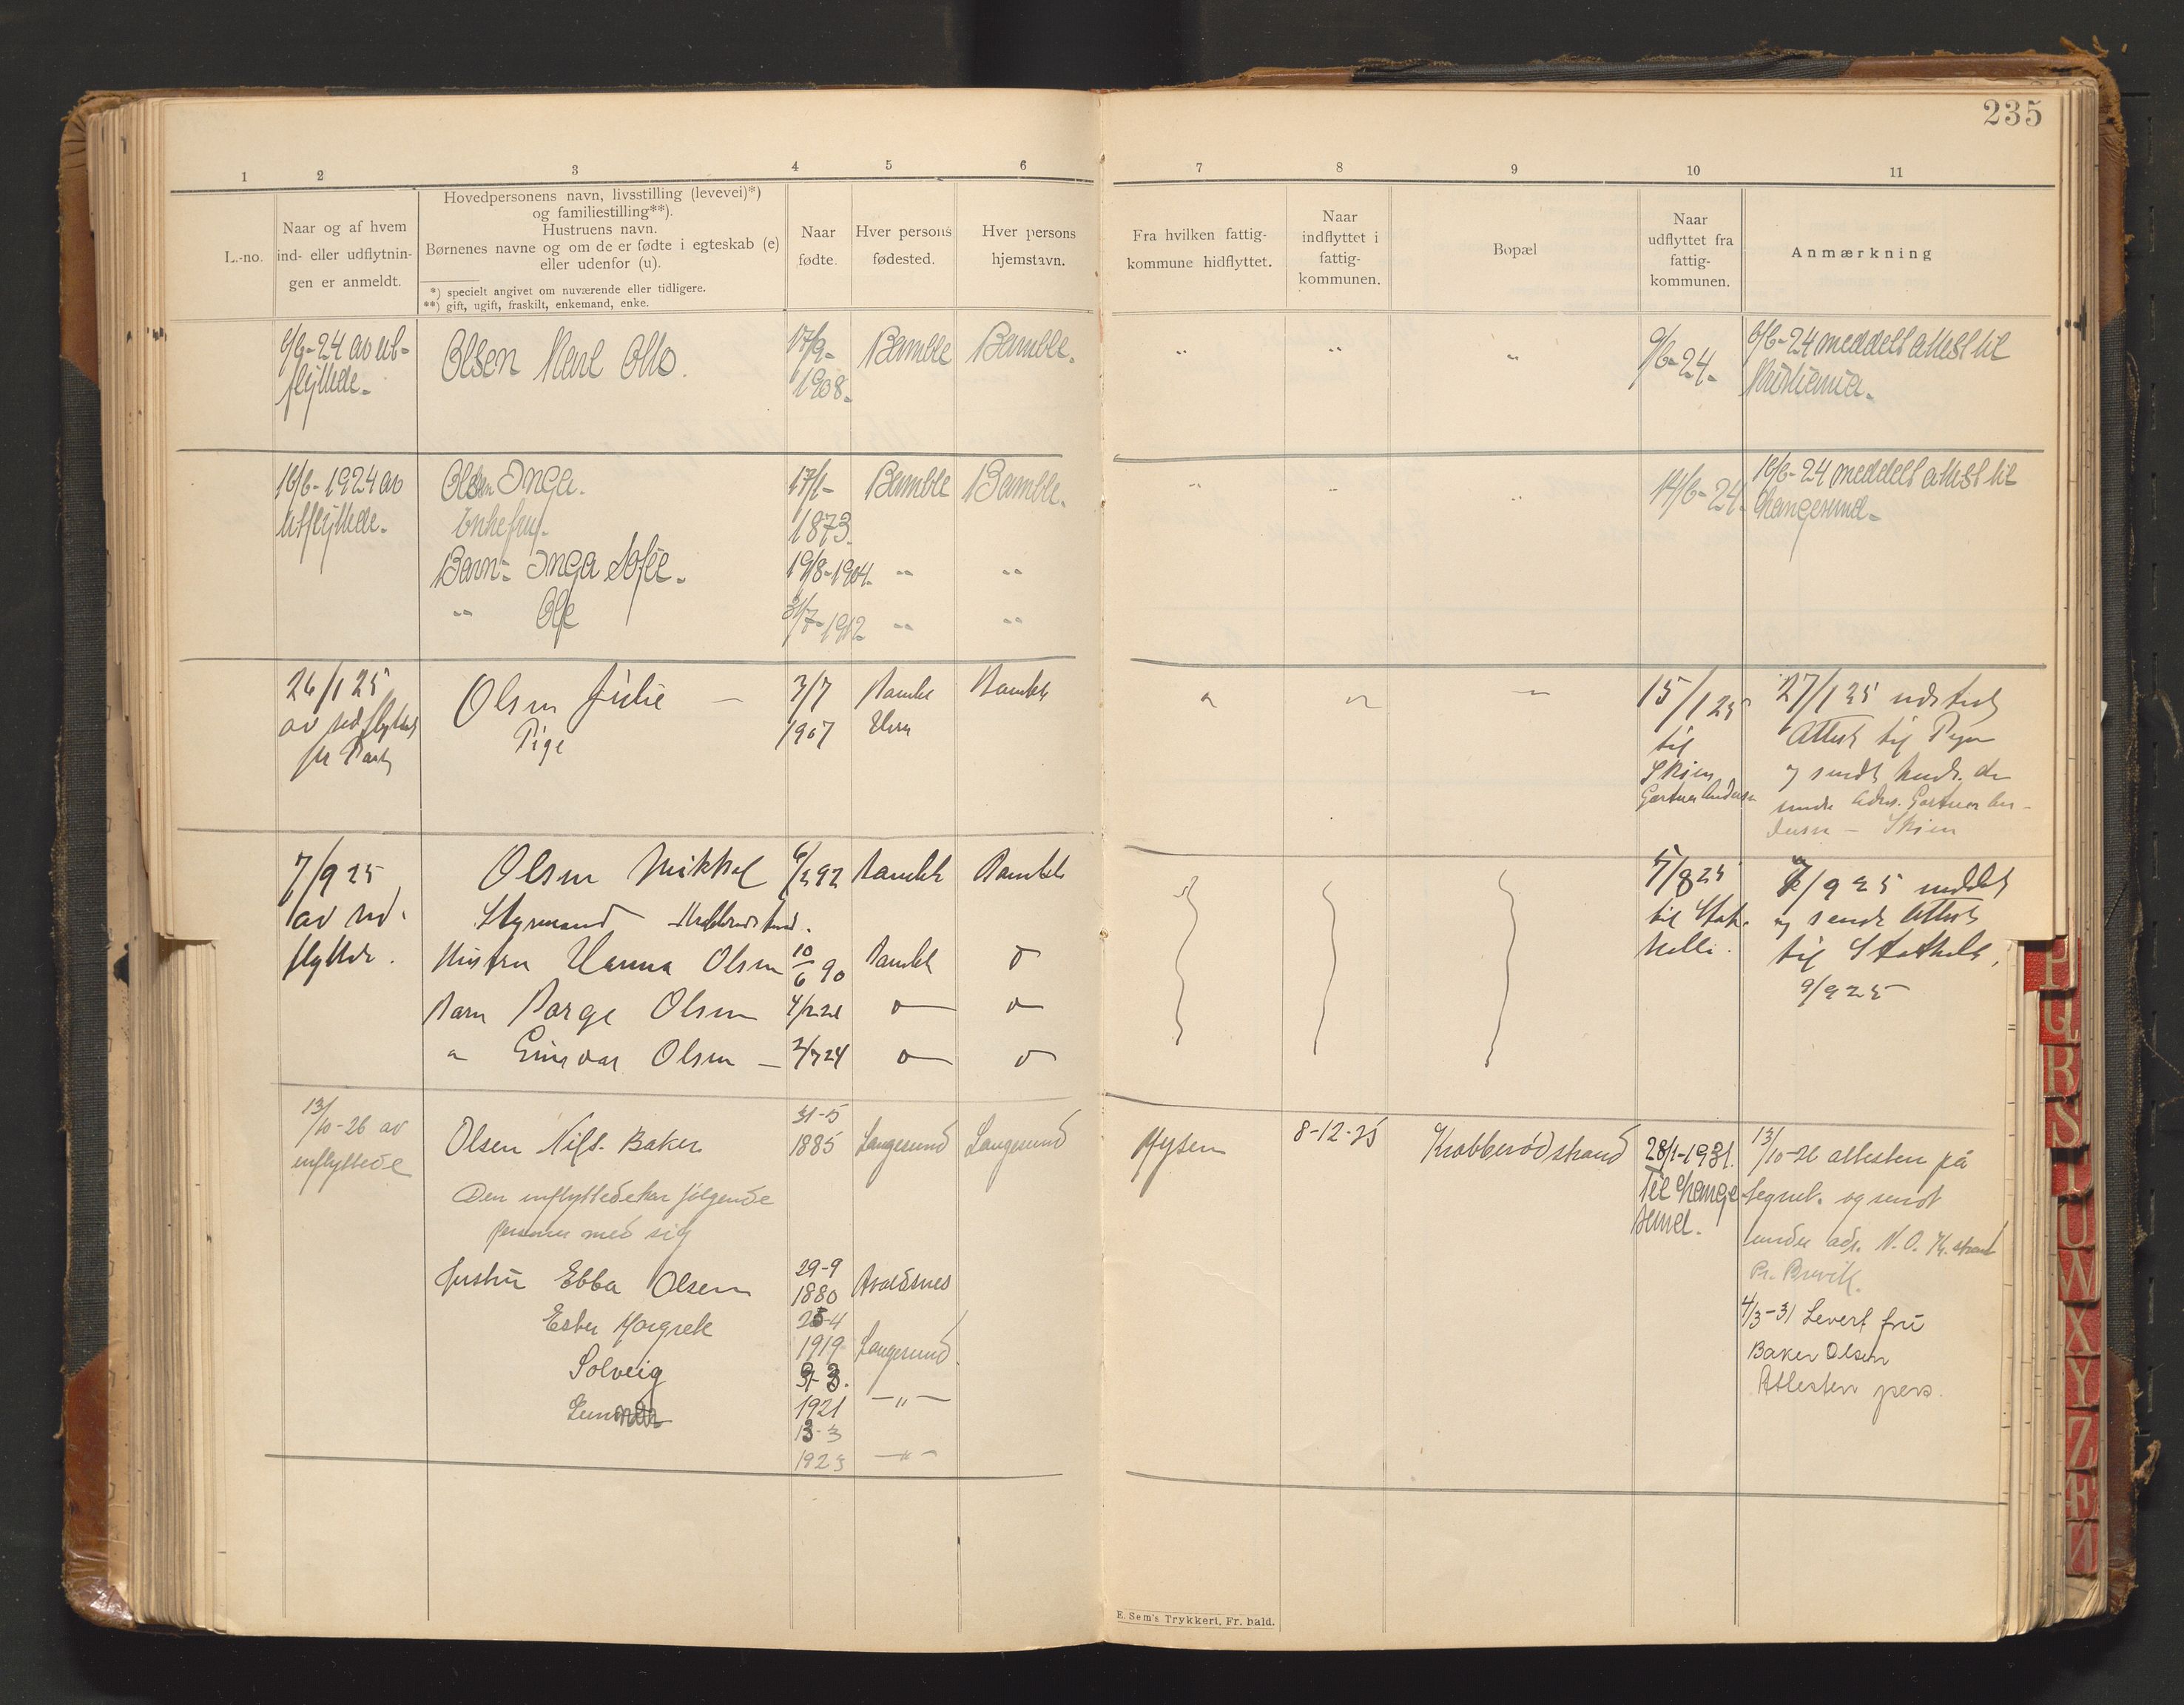 235
1 2 3 4 5 6 7 8 9 10 11
L.-no.
Naar og af hvem
ind- eller udflytnin-
gen er anmeldt.
Hovedpersonens navn, livsstilling (levevei)*)
og familiestilling**).
Hustruens navn.
Børnenes navne og om de er fødte i egteskab (e)
eller udenfor (u).
*) specielt angivet om nuværende eller tidligere.
**) gift, ugift, fraskilt, enkemand, enke.
Naar
fødte.
Hver persons
fødested.
Hver persons
hjemstavn.
Fra hvilken fattig-
kommune hidflyttet.
Naar
indflyttet i
fattig-
kommunen.
Bopæl
Naar
udflyttet fra
fattig-
kommunen.
Anmærkning
6/6-24 av ut-
flyttede-
Olsen Karl Otto.
17/9-
1908-
Bamble
Bamble.
" " "
9/6-24-
6/6-24 meddelt attest til
Kristiania.
16/6-1924 av
utflyttede-
Olsen Inga.
Enkefru-
17/1-
1873.
Bamble
Bamble.
" " "
14/6-24.
16/6-24 meddelt attest til
Langesund-
Barn- Inga Sofie. 19/8-1904. " "
" Ole 31/7-1912 " "
26/1 25
av udflyttet
Olsen Julie —
Pige
3/7
1907
Bamble
Bamble
15/1 25
til
Skien
Gartner Andersen
27/1 25 udstedt
Attest til
og sendt
adr. Gartner An-
dersen - Skien
7/9 25
av ud-
flyttde.
Olsen Mikkel
Styrmand
6/2 92
Bamble
Bamble
Hustru Hanna Olsen 10/6 90 Bamble
Barn Borge Olsen
" Olsen — 2/7 24
5/8 25
til Stat-
helle.
7/9 25 meddelt
og sendt Attest
til Stathelle.
9/9 25
13/10-26 av
innflyttede
Olsen Nils. Baker
31-5
1885
Langesund
Langesund
8-12-25
Krabberødstrand
28/1-1931.
Til Lange-
sund.
13/10-26 attesten på
tegnet. og sendt
under adr. N. O. Kr. strand
Pr. Brevik.
4/3-31 Levert fru
Baker Olsen
Attesten pers.
Den innflyttede har følgende
personer med sig
Hustru Ebba Olsen
29-9
1880
Avaldsnes
Ester Margrete
25-4
1919
Langesund
Solveig
1921
— " —
Gunnar
13-3
1923
— " —
E. Sem's Trykkeri, Fr.hald.
P
Q
R
S
T
U
W
X
Y
Z
Æ
Ø